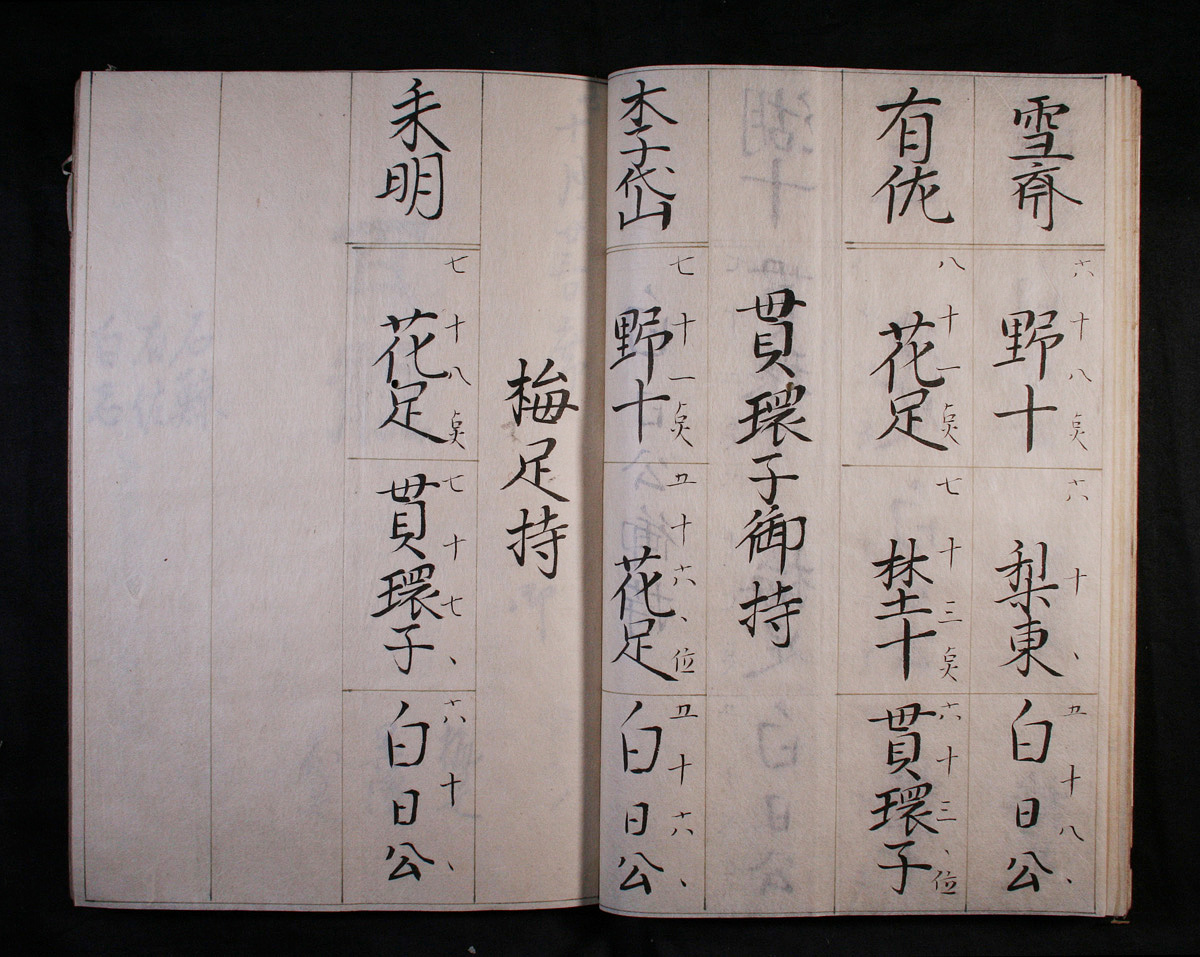 雪斎
六十八点
野十
六十、
梨東
五十八、
白日公
有佐
八十一点
花足
七十三点
埜十
六十三、位
貫環子
貫環子御持
李岱
七十一点
野十
五十六、位
花足
五十六、
白日公
梅足持
耒明
七十八点
花足
七十七、
貫環子
六十、
白日公